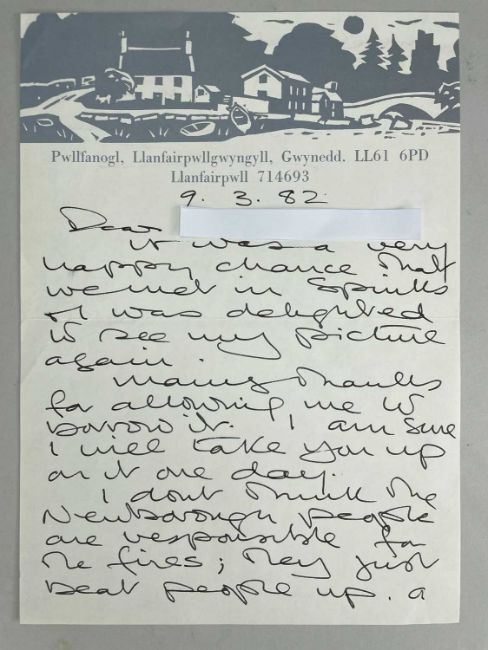 Pwllfanogl, Llanfairpwllgwyngyll, Gwynedd. LL61 6PD
Llanfairpwll 714693
9. 3. 82
Dear
it was a very
happy chance that
we met in Spinks
& I was delighted
to see my picture
again.
Many thanks
for allowing me to
borrow it. I am sure
I will take you up
on it one day.
I dont think the
Newborough people
are responsible for
the fires; they just
beat people up. a